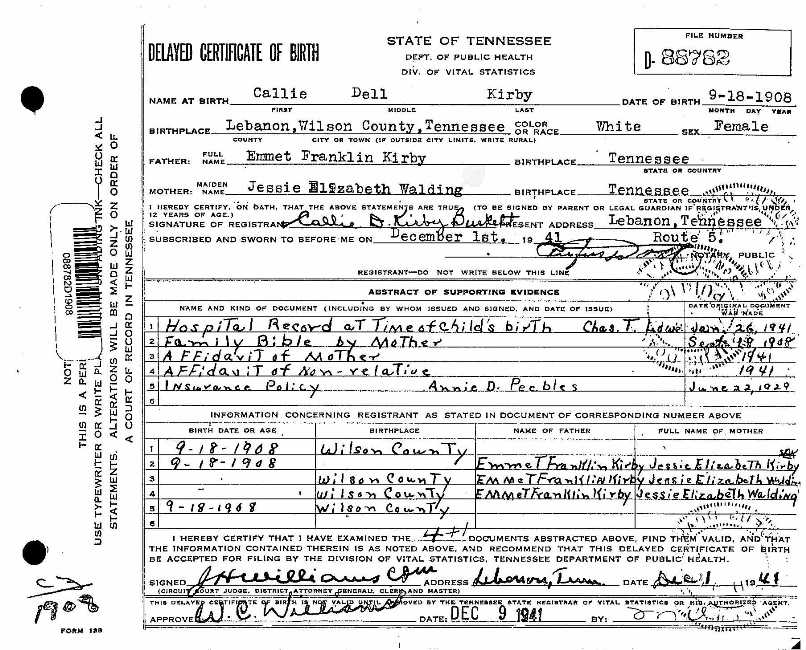 DELAYED CERTIFICATE OF BIRTH
STATE OF TENNESSEE
DEPT. OF PUBLIC HEALTH
DIV. OF VITAL STATISTICS
FILE NUMBER
D-88782
NAME AT BIRTH Callie Dell Kirby DATE OF BIRTH 9-18-1908
FIRST MIDDLE LAST MONTH DAY YEAR
BIRTHPLACE Lebanon, Wilson County, Tennessee COLOR OR RACE White SEX Female
COUNTY CITY OR TOWN (IF OUTSIDE CITY LIMITS, WRITE RURAL)
FATHER: FULL NAME Emmet Franklin Kirby BIRTHPLACE Tennessee
STATE OR COUNTRY
MOTHER: MAIDEN NAME Jessie Elizabeth Walding BIRTHPLACE Tennessee
STATE OR COUNTRY
I HEREBY CERTIFY, ON OATH, THAT THE ABOVE STATEMENTS ARE TRUE. (TO BE SIGNED BY PARENT OR LEGAL GUARDIAN IF REGISTRANT IS UNDER
12 YEARS OF AGE.)
SIGNATURE OF REGISTRANT Callie D. Kirby Burkett PRESENT ADDRESS Lebanon, Tennessee
SUBSCRIBED AND SWORN TO BEFORE ME ON December 1st. 19 41 Route 5.
NOTARY PUBLIC
REGISTRANT—DO NOT WRITE BELOW THIS LINE
ABSTRACT OF SUPPORTING EVIDENCE
NAME AND KIND OF DOCUMENT (INCLUDING BY WHOM ISSUED AND SIGNED, AND DATE OF ISSUE) DATE ORIGINAL DOCUMENT WAS MADE
1 Hospital Record at Time of Child's birth Chas. T. Jan. 26, 1941
2 Family Bible by Mother Sept. 18 1908
3 Affidavit of Mother 1941
4 Affidavit of Non-relative 1941
5 Insurance Policy Annie D. Peebles June 22, 1929
6
INFORMATION CONCERNING REGISTRANT AS STATED IN DOCUMENT OF CORRESPONDING NUMBER ABOVE
BIRTH DATE OR AGE BIRTHPLACE NAME OF FATHER FULL NAME OF MOTHER
1 9-18-1908 Wilson County
2 9-18-1908 Emmet Franklin Kirby Jessie Elizabeth Kirby
3 Wilson County Emmet Franklin Kirby Jessie Elizabeth Walding
4 Wilson County Emmet Franklin Kirby Jessie Elizabeth Walding
5 9-18-1908 Wilson County
6
I HEREBY CERTIFY THAT I HAVE EXAMINED THE DOCUMENTS ABSTRACTED ABOVE, FIND THEM VALID, AND THAT
THE INFORMATION CONTAINED THEREIN IS AS NOTED ABOVE, AND RECOMMEND THAT THIS DELAYED CERTIFICATE OF BIRTH
BE ACCEPTED FOR FILING BY THE DIVISION OF VITAL STATISTICS, TENNESSEE DEPARTMENT OF PUBLIC HEALTH.
SIGNED J H Williams ADDRESS Lebanon, Tenn DATE Dec 1 1941
(CIRCUIT COURT JUDGE, DISTRICT ATTORNEY GENERAL, CLERK AND MASTER)
THIS DELAYED CERTIFICATE OF BIRTH IS NOT VALID UNTIL APPROVED BY THE TENNESSEE STATE REGISTRAR OF VITAL STATISTICS OR HIS AUTHORIZED AGENT.
APPROVED W. C. Williams DATE: DEC 9 1941 BY:
088782D1908
USE TYPEWRITER OR WRITE PL
NG INK—CHECK ALL
STATEMENTS. ALTERATIONS WILL BE MADE ONLY ON ORDER OF
A COURT OF RECORD IN TENNESSEE
THIS IS A PER
NOT
1908
FORM 138